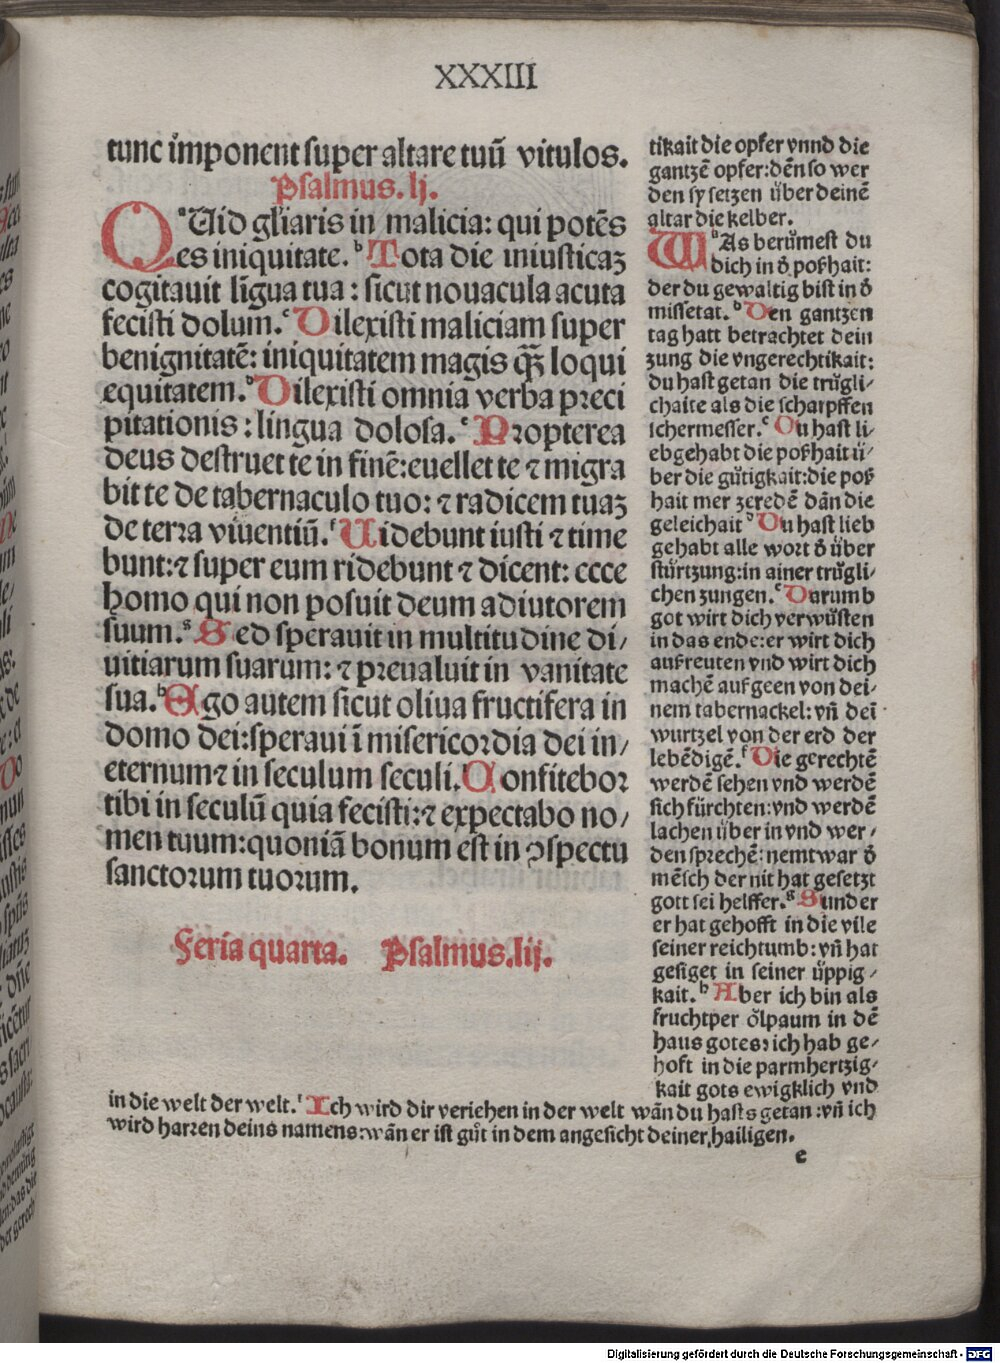 XXXIII
tunc imponent super altare tuū vitulos.
Psalmus. lj.
QUid gl̄iaris in malicia: qui potēs
es iniquitate. Tota die iniusticaꝫ
cogitauit lĩgua tua: sicut nouacula acuta
fecisti dolum. Dilexisti maliciam super
benignitatē: iniquitatem magis q̄ꝫ loqui
equitatem. Dilexisti omnia verba preci
pitationis: lingua dolosa. Propterea
deus destruet te in finē: euellet te ⁊ migra
bit te de tabernaculo tuo: ⁊ radicem tuaꝫ
de terra viuentiū. Uidebunt iusti ⁊ time
bunt: ⁊ super eum ridebunt ⁊ dicent: ecce
homo qui non posuit deum adiutorem
suum. Sed sperauit in multitudine di/
uitiarum suarum: ⁊ preualuit in vanitate
sua. Ego autem sicut oliua fructifera in
domo dei: speraui ī misericordia dei in/
eternum ⁊ in seculum seculi. Confitebor
tibi in seculū quia fecisti: ⁊ expectabo no/
men tuum: quoniā bonum est in ꝯspectu
sanctorum tuorum.
Feria quarta. Psalmus. lij.
tikait die opfer vnnd die
gantzē opfer: dēn so wer
den sy setzen über deinē
altar die kelber.
WAs berůmest du
dich in d̄ poßhait:
der du gewaltig bist in d̄
missetat. Den gantzen
tag hatt betrachtet dein
zung die vngerechtikait:
du hast getan die trůgli/
chaite als die scharpffen
schermesser. Du hast li/
ebgehabt die poßhait ü/
ber die gůtigkait: die poß
hait mer zeredē dān die
geleichait Du hast lieb
gehabt alle wort d̄ über
stürtzung: in ainer trůgli/
chen zungen. Darumb
got wirt dich verwůsten
in das ende: er wirt dich
außreuten vnd wirt dich
machē aufgeen von dei/
nem tabernackel: vn̄ dei
wurtzel von der erd der
lebēdigē. Die gerechtē
werdē sehen vnd werdē
sich fürchten: vnd werdē
lachen über in vnd wer/
den sprechē: nemt war d̄
mēsch der nit hat gesetzt
gott sei helffer. Sunder
er hat gehofft in die vile
seiner reichtumb: vn̄ hat
gesiget in seiner üppig/
kait. Aber ich bin als
fruchtper ölpaum in dē
haus gotes: ich hab ge/
hoft in die parmhertzig/
kait gots ewigklich vnd
in die welt der welt. Ich wird dir veriehen in der welt wān du hasts getan: vn̄ ich
wird harren deins namens: wān er ist gůt in dem angesicht deiner hailigen.
e
Digitalisierung gefördert durch die Deutsche Forschungsgemeinschaft - DFG